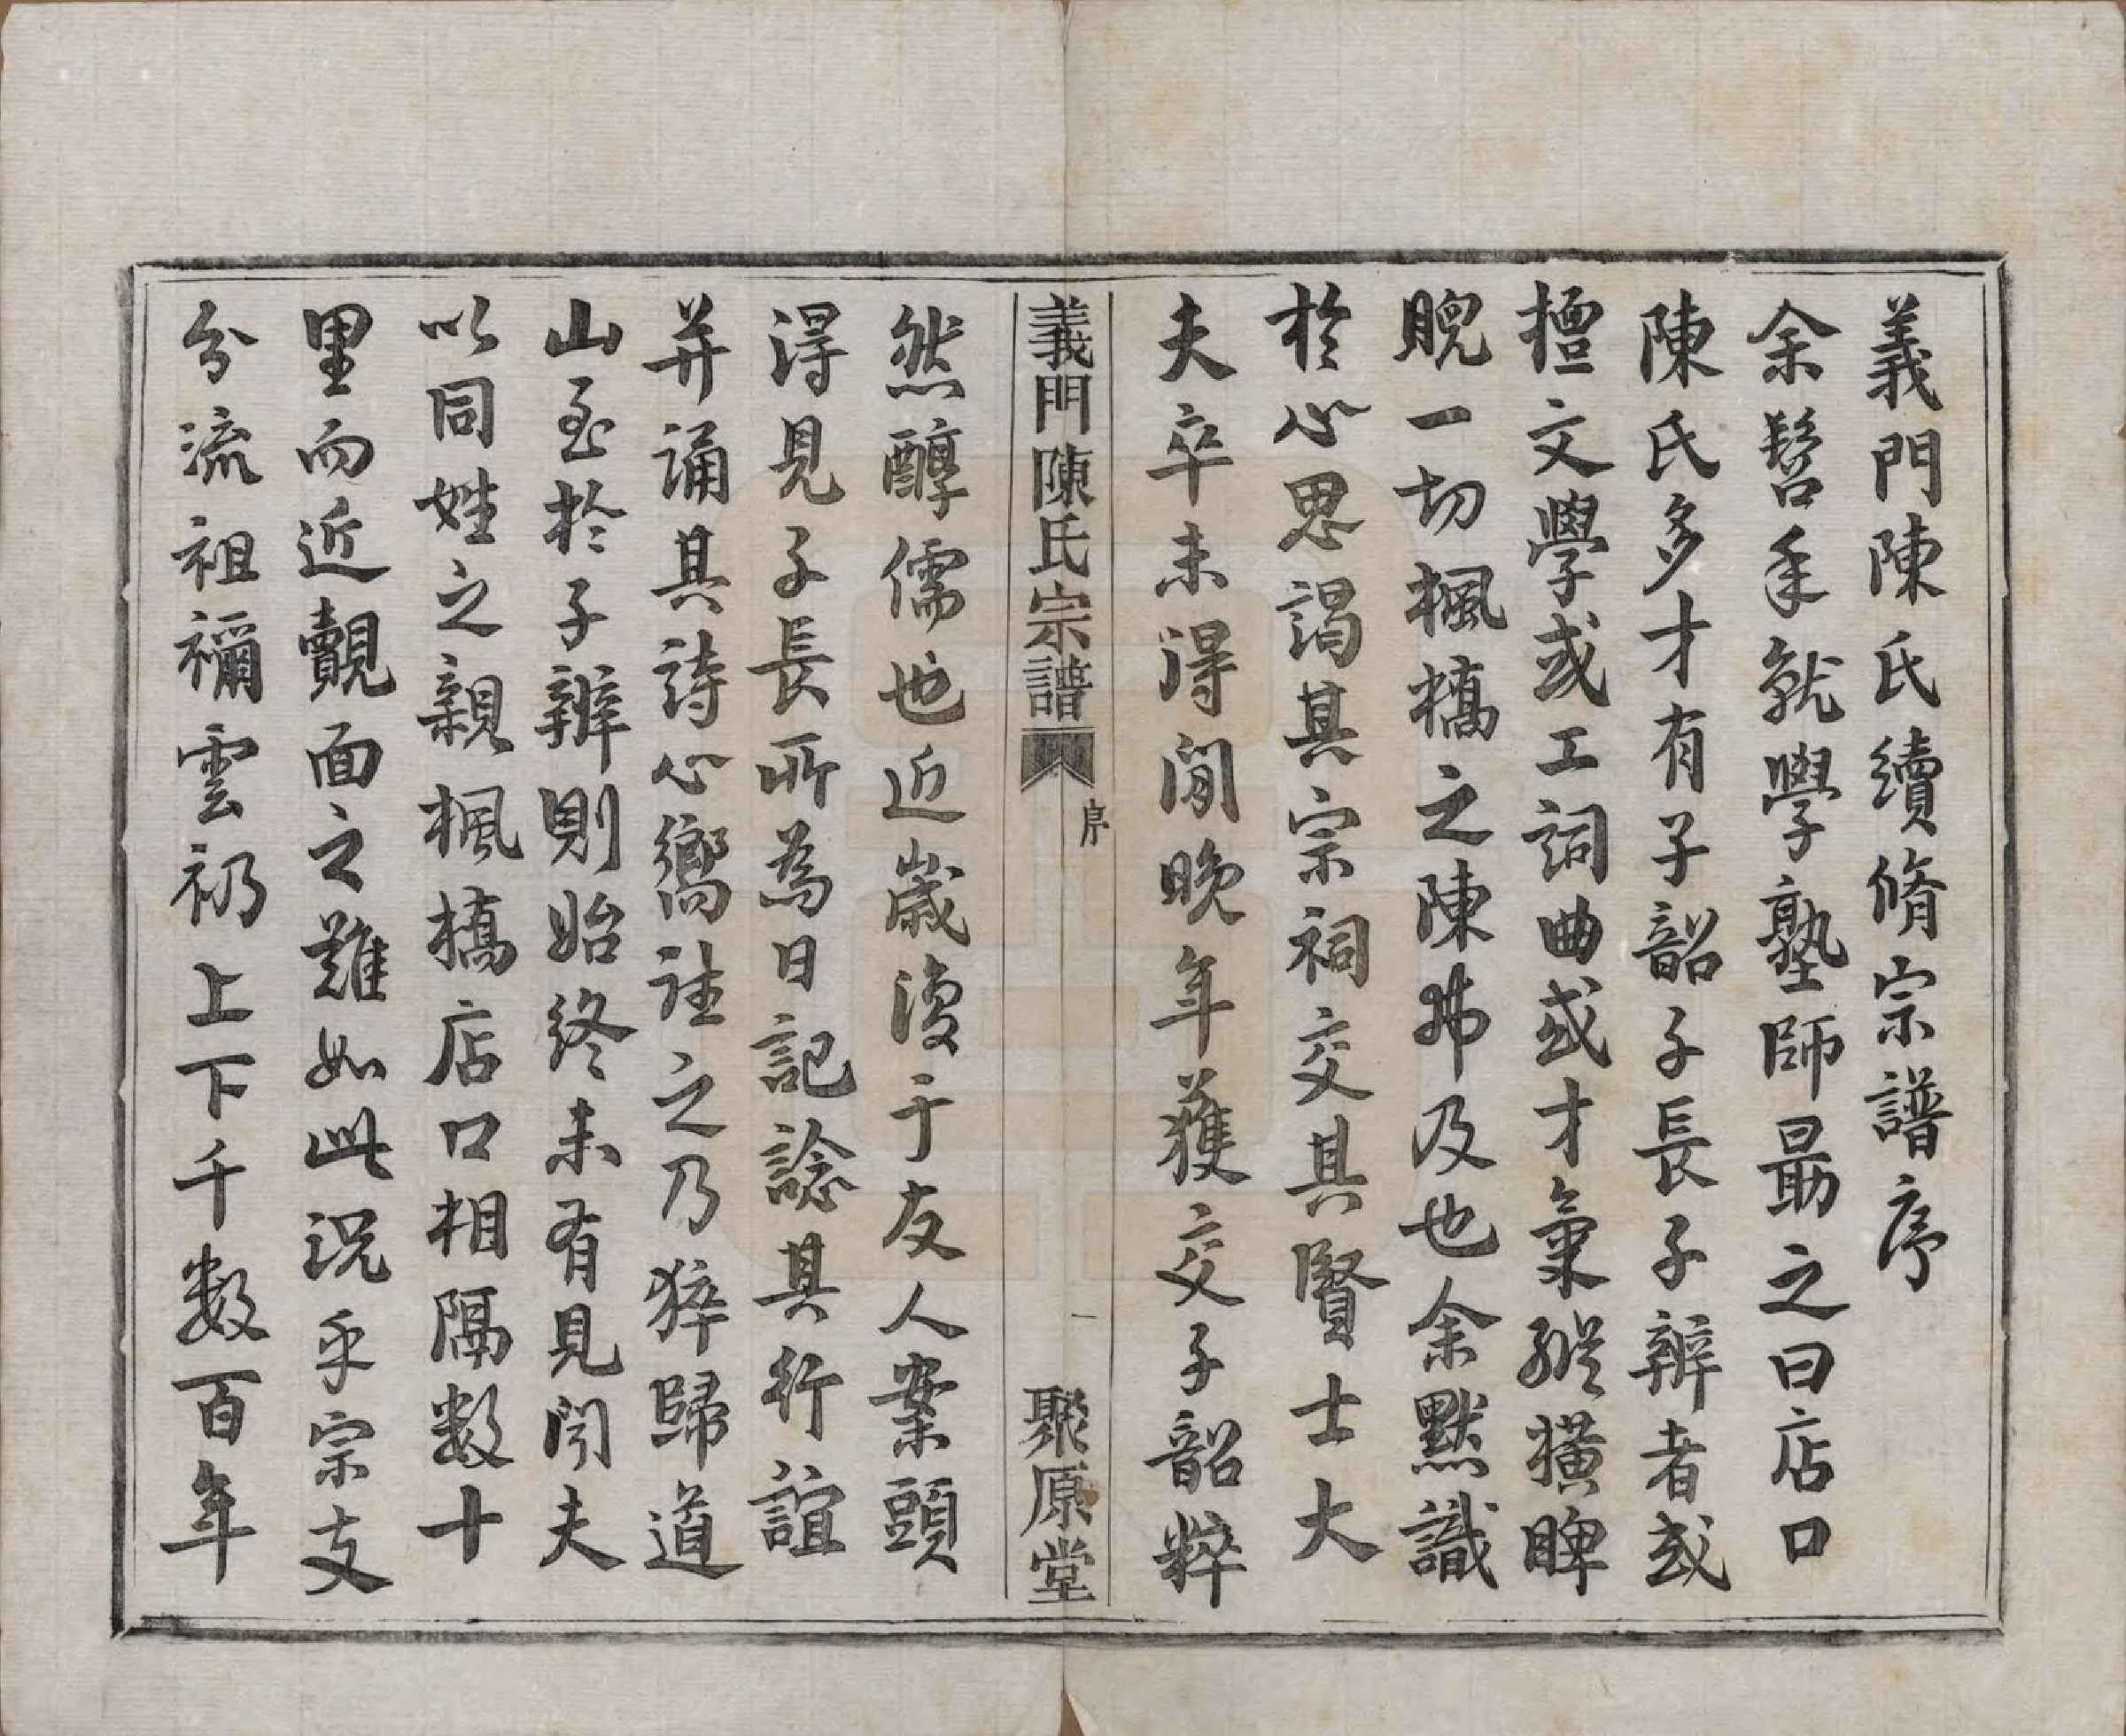 義門陳氏續脩宗譜序
余髫年就學塾師最之曰店口
陳氏多才有子韶子長子辨者或
擅文學或工詞曲或才氣縱橫睥
睨一切楓橋之陳弗及也余默識
於心思謁其宗祠交其賢士大
夫卒未得閒晚年獲交子韶粹
義門陳氏宗譜
序
一
聚原堂
然醇儒也近歲復于友人案頭
得見子長所為日記諗其行誼
并誦其詩心嚮往之乃猝歸道
山至於子辨則始終未有見聞夫
以同姓之親楓橋店口相隔數十
里而近覿面之難如此況乎宗支
分流祖禰雲礽上下千數百年